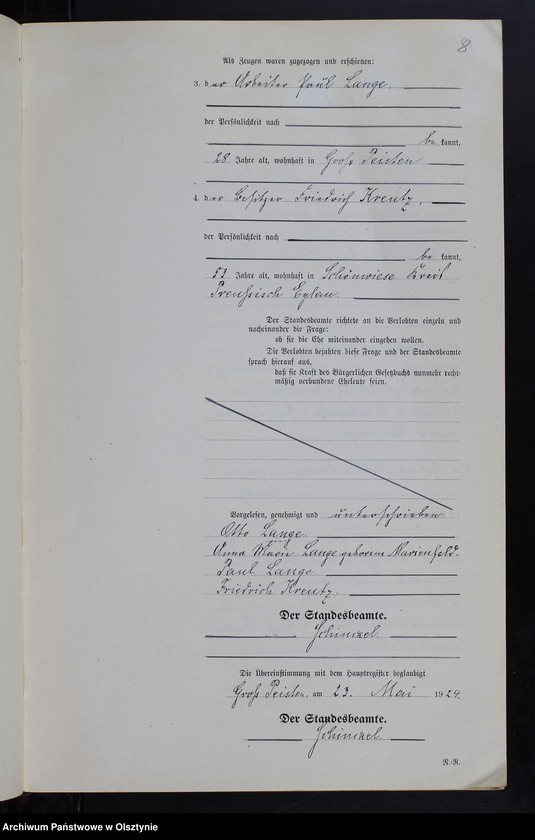 8
Als Zeugen waren zugezogen und erschienen:
3. der Arbeiter Paul Lange.
der Persönlichkeit nach
be kannt,
28 Jahre alt, wohnhaft in Groß Peisten
4. der Besitzer Friedrich Kreutz,
der Persönlichkeit nach
be kannt,
51 Jahre alt, wohnhaft in Schönwiese Kreis
Preußisch Eylau.
Der Standesbeamte richtete an die Verlobten einzeln und
nacheinander die Frage:
ob sie die Ehe miteinander eingehen wollen.
Die Verlobten bejahten diese Frage und der Standesbeamte
sprach hierauf aus,
daß sie Kraft des Bürgerlichen Gesetzbuchs nunmehr recht-
mäßig verbundene Eheleute seien.
Vorgelesen, genehmigt und unterschrieben
Otto Lange.
Anna Lange geborene Marienfeld.
Paul Lange
Friedrich Kreutz.
Der Standesbeamte.
Schinkel
Die Übereinstimmung mit dem Hauptregister beglaubigt
Groß Peisten, am 23. Mai 1924.
Der Standesbeamte.
Schinkel
N.-R.
Archiwum Państwowe w Olsztynie